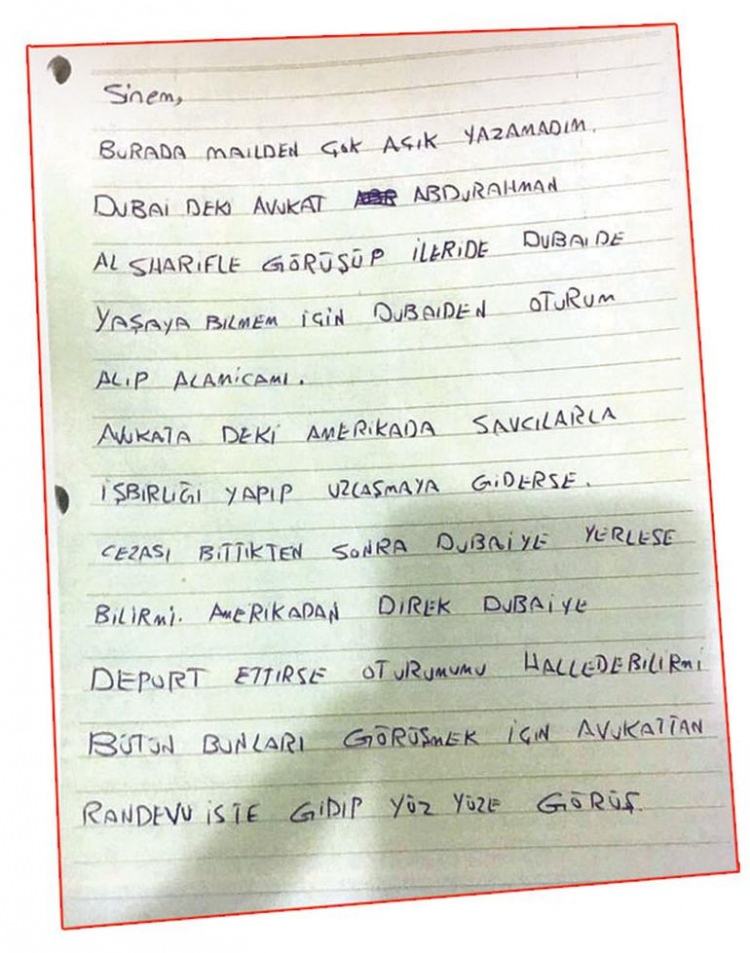 Sinem,
BURADA MAILDEN ÇOK AÇIK YAZAMADIM.
DUBAI DEKI AVUKAT ABDURAHMAN
AL SHARIFLE GÖRÜŞÜP İLERİDE DUBAIDE
YAŞAYA BILMEM İÇİN DUBAIDEN OTURUM
ALIP ALAMICAMI.
AVUKATA DEKİ AMERİKADA SAVCILARLA
İŞBIRLIĞI YAPIP UZLAŞMAYA GİDERSE.
CEZASI BİTTİKTEN SONRA DUBAİYE YERLEŞE
BİLİRMİ. AMERIKADAN DIREK DUBAİYE
DEPORT ETTIRSE OTURUMUMU HALLEDEBILIRMI
BÜTÜN BUNLARI GÖRÜŞMEK İÇİN AVUKATTAN
RANDEVU İSTE GIDIP YÜZ YÜZE GÖRÜŞ.